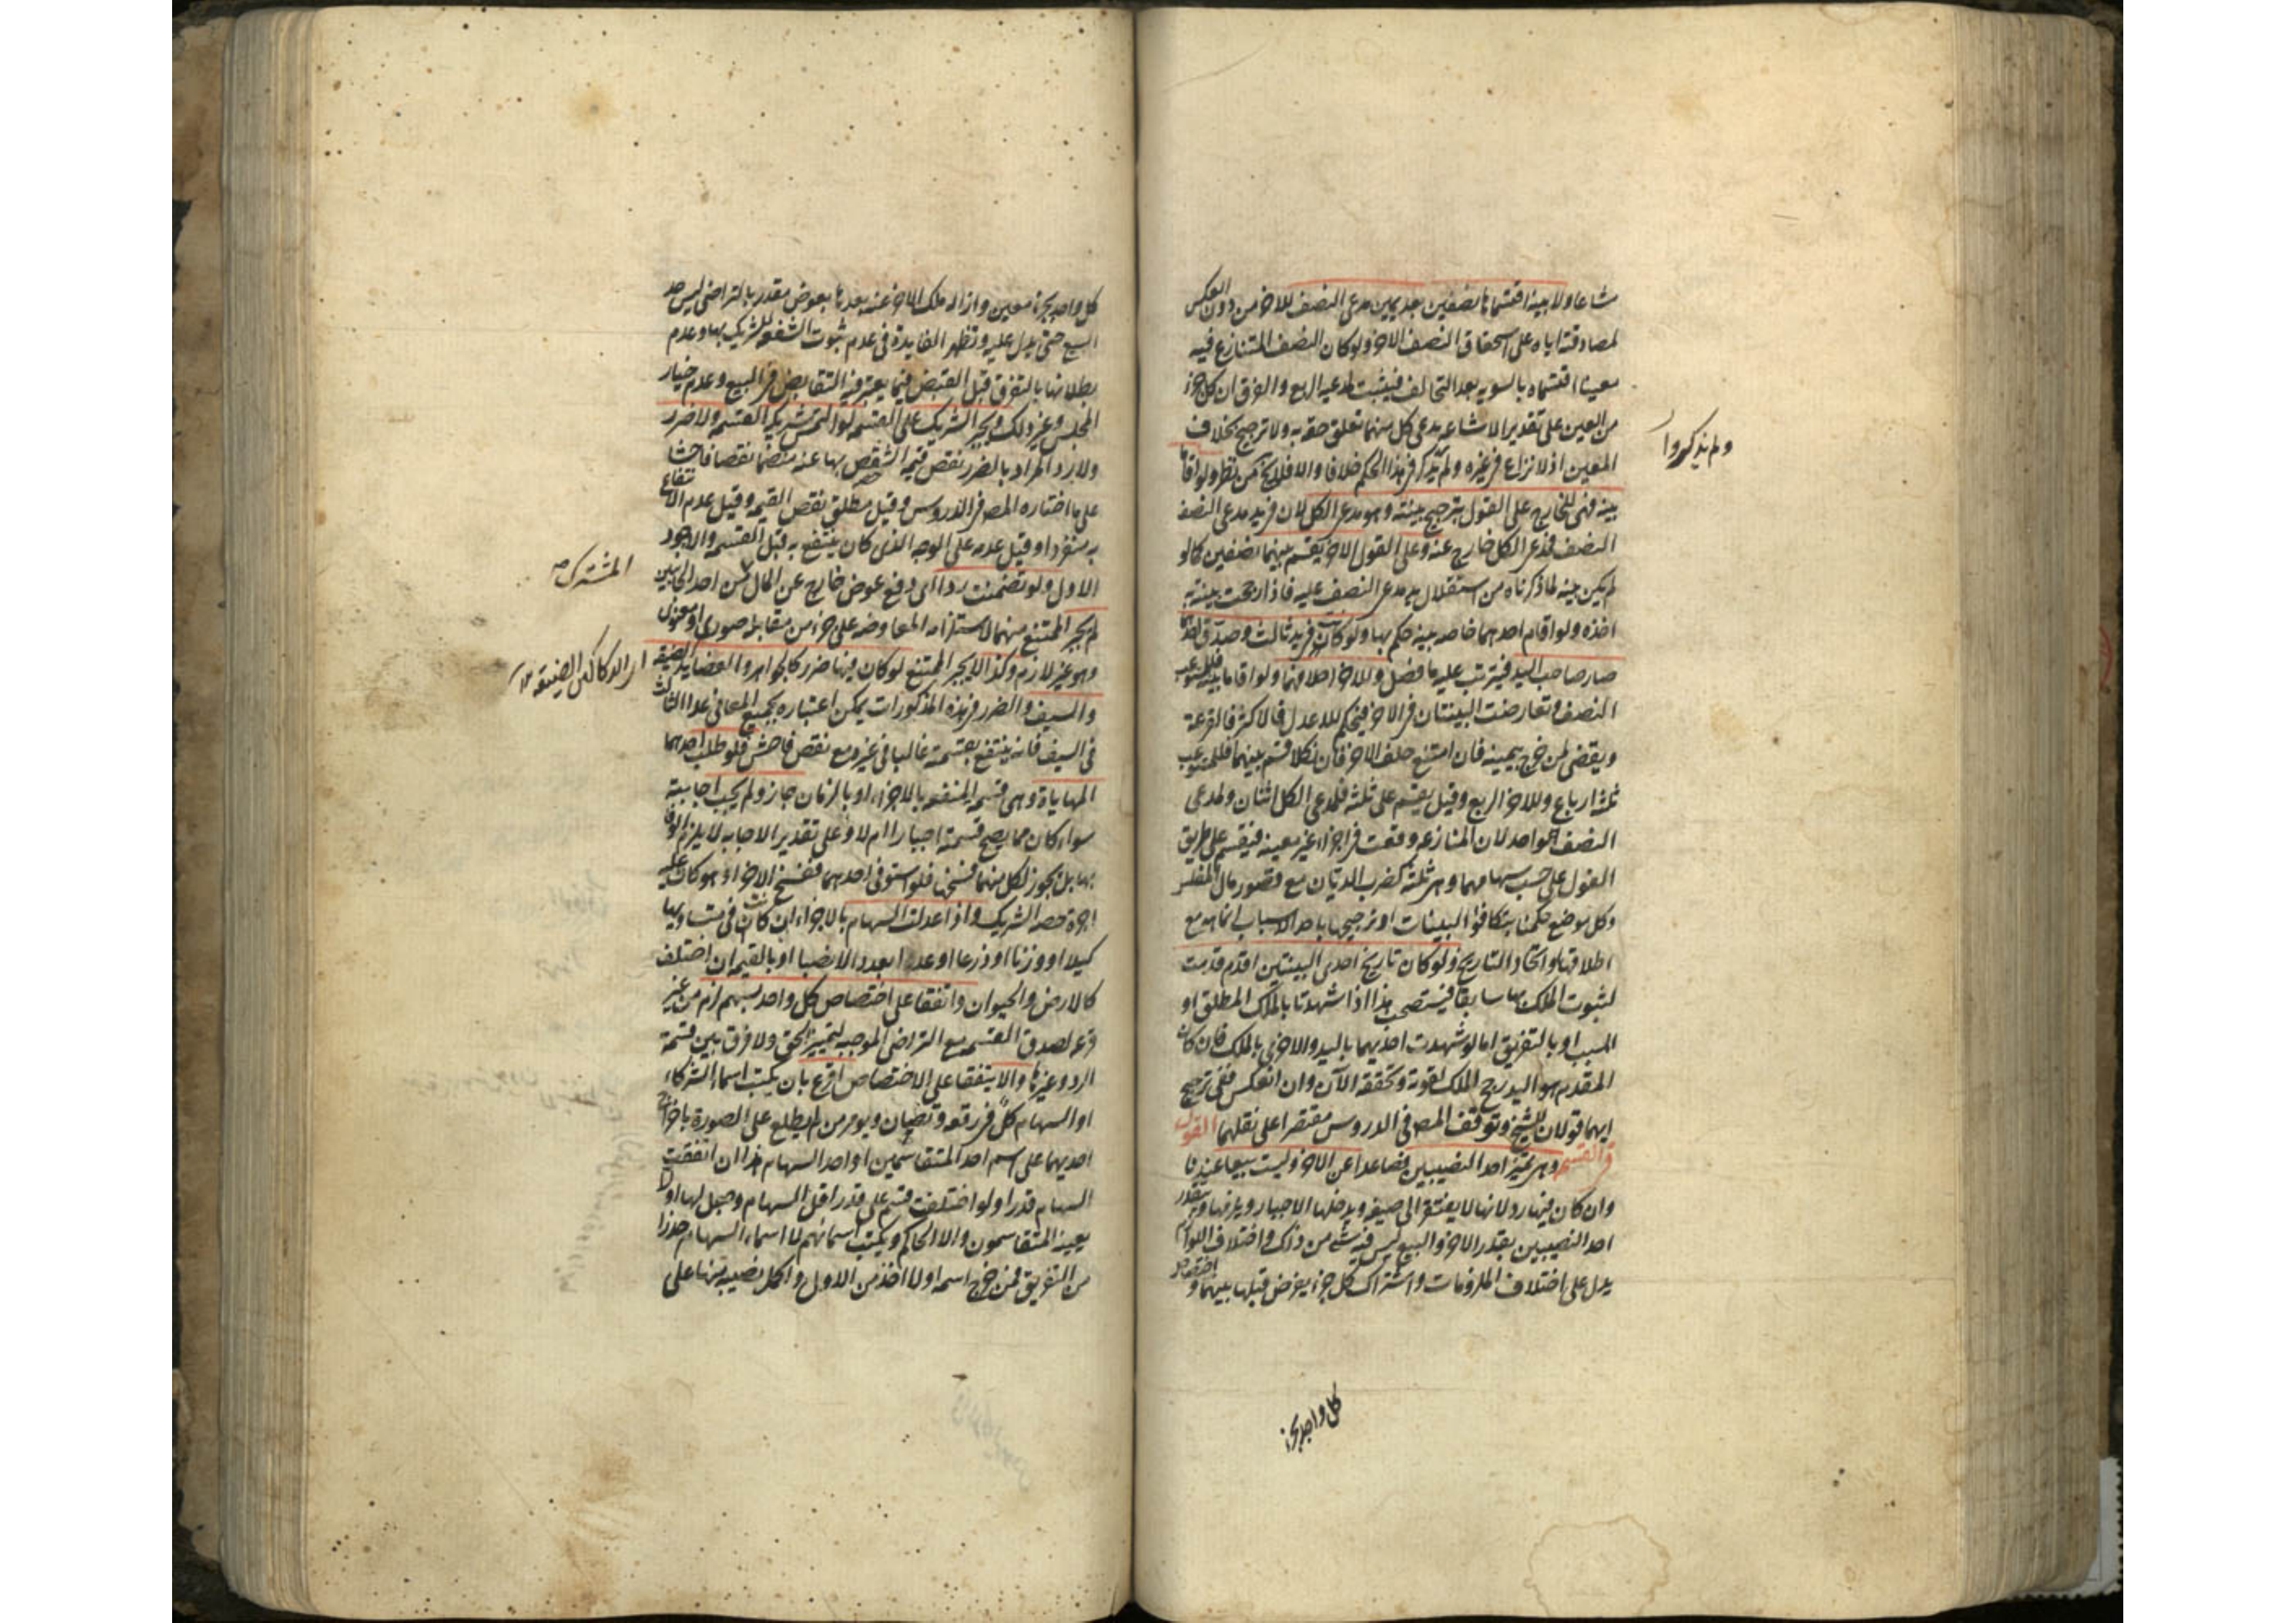 مشاعا ولا بينة اقتسماها نصفين بعد يمين مدعى النصف للاخر من دون العكس
لمصادقته اياه على استحقاق النصف الاخر ولو كان النصف المتنازع فيه
معينا اقتسماه بالسوية بعد التحالف فيثبت لمدعيه الربع والفرق ان كل جزء
من العين على تقدير الاشاعة يدعى كل منهما تعلق حقه به ولا ترجيح بخلاف
المعين اذ لا نزاع فى غيره ولم يذكر فى هذا الحكم خلافا والا فلا يخ من نظر ولو اقاما
بينة فهى للخارج على القول بترجيح بينته وهو مدعى الكل لان فى يد مدعى النصف
النصف فمدعى الكل خارج عنه وعلى القول الاخر يقسم بينهما نصفين كما لو
لم يكن بينة لما ذكرناه من استقلال يد مدعى النصف عليه فاذا رجحت بينته به
اخذه ولو اقام احدهما خاصة بينة حكم بها ولو كانت فى يد ثالث وصدق احدهما
صار صاحب اليد فيترتب عليه ما فصل وللاخر احلافهما ولو اقاما بينة فللمستوعب
النصف وتعارضت البينتان فى الاخر فيحكم للاعدل فالاكثر فالقرعة
ويقضى لمن خرج بيمينه فان امتنع حلف الاخر فان نكلا قسم بينهما فللمستوعب
ثلثة ارباع وللاخر الربع وقيل يقسم على ثلثة فلمدعى الكل اثنان ولمدعى
النصف واحد لان المنازعة وقعت فى اجزاء غير معينة فيقسم على طريق
العول على حسب سهامهما وهى ثلثة كضرب الديان مع قصور مال المفلس
وكل موضع حكمنا بتكافؤ البينات او ترجيحها باحد الاسباب انما هو مع
اطلاقها او اتحاد التاريخ ولو كان تاريخ احدى البينتين اقدم قدمت
لثبوت الملك بها سابقا فيستصحب هذا اذا شهدتا بالملك المطلق او
المسبب او بالتفريق اما لو شهدت احديهما باليد والاخرى بالملك فان كان
المقدم هو اليد رجح الملك لقوته وتحققه الآن وان انعكس ففى ترجيح
ايهما قولان للشيخ وتوقف المص فى الدروس مقتصرا على نقلهما القول
فى القسمة وهى تمييز احد النصيبين فصاعدا عن الاخر وليست بيعا عندنا
وان كان فيها رد لانها لا يفتقر الى صيغة ويدخلها الاجبار ويلزمها ويتقدر
احد النصيبين بقدر الاخر والبيع ليس فيه شىء من ذلك واختلاف اللوازم
يدل على اختلاف الملزومات واشتراك كل جزء يفرض قبلها بينهما واختصاص
ولم يذكروا
كل واحد بجزء
كل واحد بجزء معين وازالة ملك الاخر عنه بعدها بعوض مقدر بالتراضى ليس حد
البيع حتى يدل عليه وتظهر الفايدة فى عدم ثبوت الشفعة للشريك بها وعدم
بطلانها بالتفرق قبل القبض فيما يعتبر فيه التقابض فى البيع وعدم خيار
المجلس وغير ذلك ويجبر الشريك على القسمة لو التمس شريكه القسمة ولا ضرر
ولا رد المراد بالضرر نقص قيمة الشقص بها عنه منضما نقصا فاحشا
على ما اختاره المص فى الدروس وقيل مطلق نقص القيمة وقيل عدم الانتفاع
به منفردا وقيل عدمه على الوجه الذى كان ينتفع به قبل القسمة والاجود
الاول ولو تضمنت ردا اى دفع عوض خارج عن المال من احد الجانبين
لم يجبر الممتنع منهما لاستلزامه المعاوضة على جزء من مقابله صورى او معنوى
وهو غير لازم وكذا لا يجبر الممتنع لو كان فيها ضرر كالجواهر والعضايد الضيقة
والسيف والضرر فى هذه المذكورات يمكن اعتباره بجميع المعانى عدا الثالث
فى السيف فانه ينتفع بقسمته غالبا فى غيره مع نقص فاحش فلو طلب احدهما
المهاياة وهى قسمة المنفعة بالاجزاء او بالزمان جاز ولم يجب اجابته
سواء كان مما يصح قسمته اجبارا ام لا وعلى تقدير الاجابة لا يلزم الوفا
بها بل يجوز لكل منهما فسخها فلو استوفى احدهما ففسخ الاخر او هو كان عليه
اجرة حصة الشريك واذا عدلت السهام بالاجزاء ان كانت فى متساويها
كيلا او وزنا او ذرعا او عددا بعدد الانصبا او بالقيمة ان اختلف
كالارض والحيوان واتفقا على اختصاص كل واحد بسهم لزم من غير
قرعة لصدق القسمة مع التراضى الموجبة لتمييز الحق ولا فرق بين قسمة
الرد وغيرها والا يتفقا على الاختصاص اقرع بان يكتب اسماء الشركاء
او السهام كل فى رقعة وتصان ويومر من لم يطلع على الصورة باخراج
احديهما على اسم احد المتقاسمين او احد السهام هذا ان اتفقت
السهام قدرا ولو اختلفت قسم على قدر اقل السهام وجعل لها اولا
يعينه المتقاسمون والا الحاكم ويكتب اسمائهم لا اسماء السهام حذرا
من التفريق فمن خرج اسمه اولا اخذ من الاول واكمل نصيبه منها على
المشترك
الدكاكين الضيقة